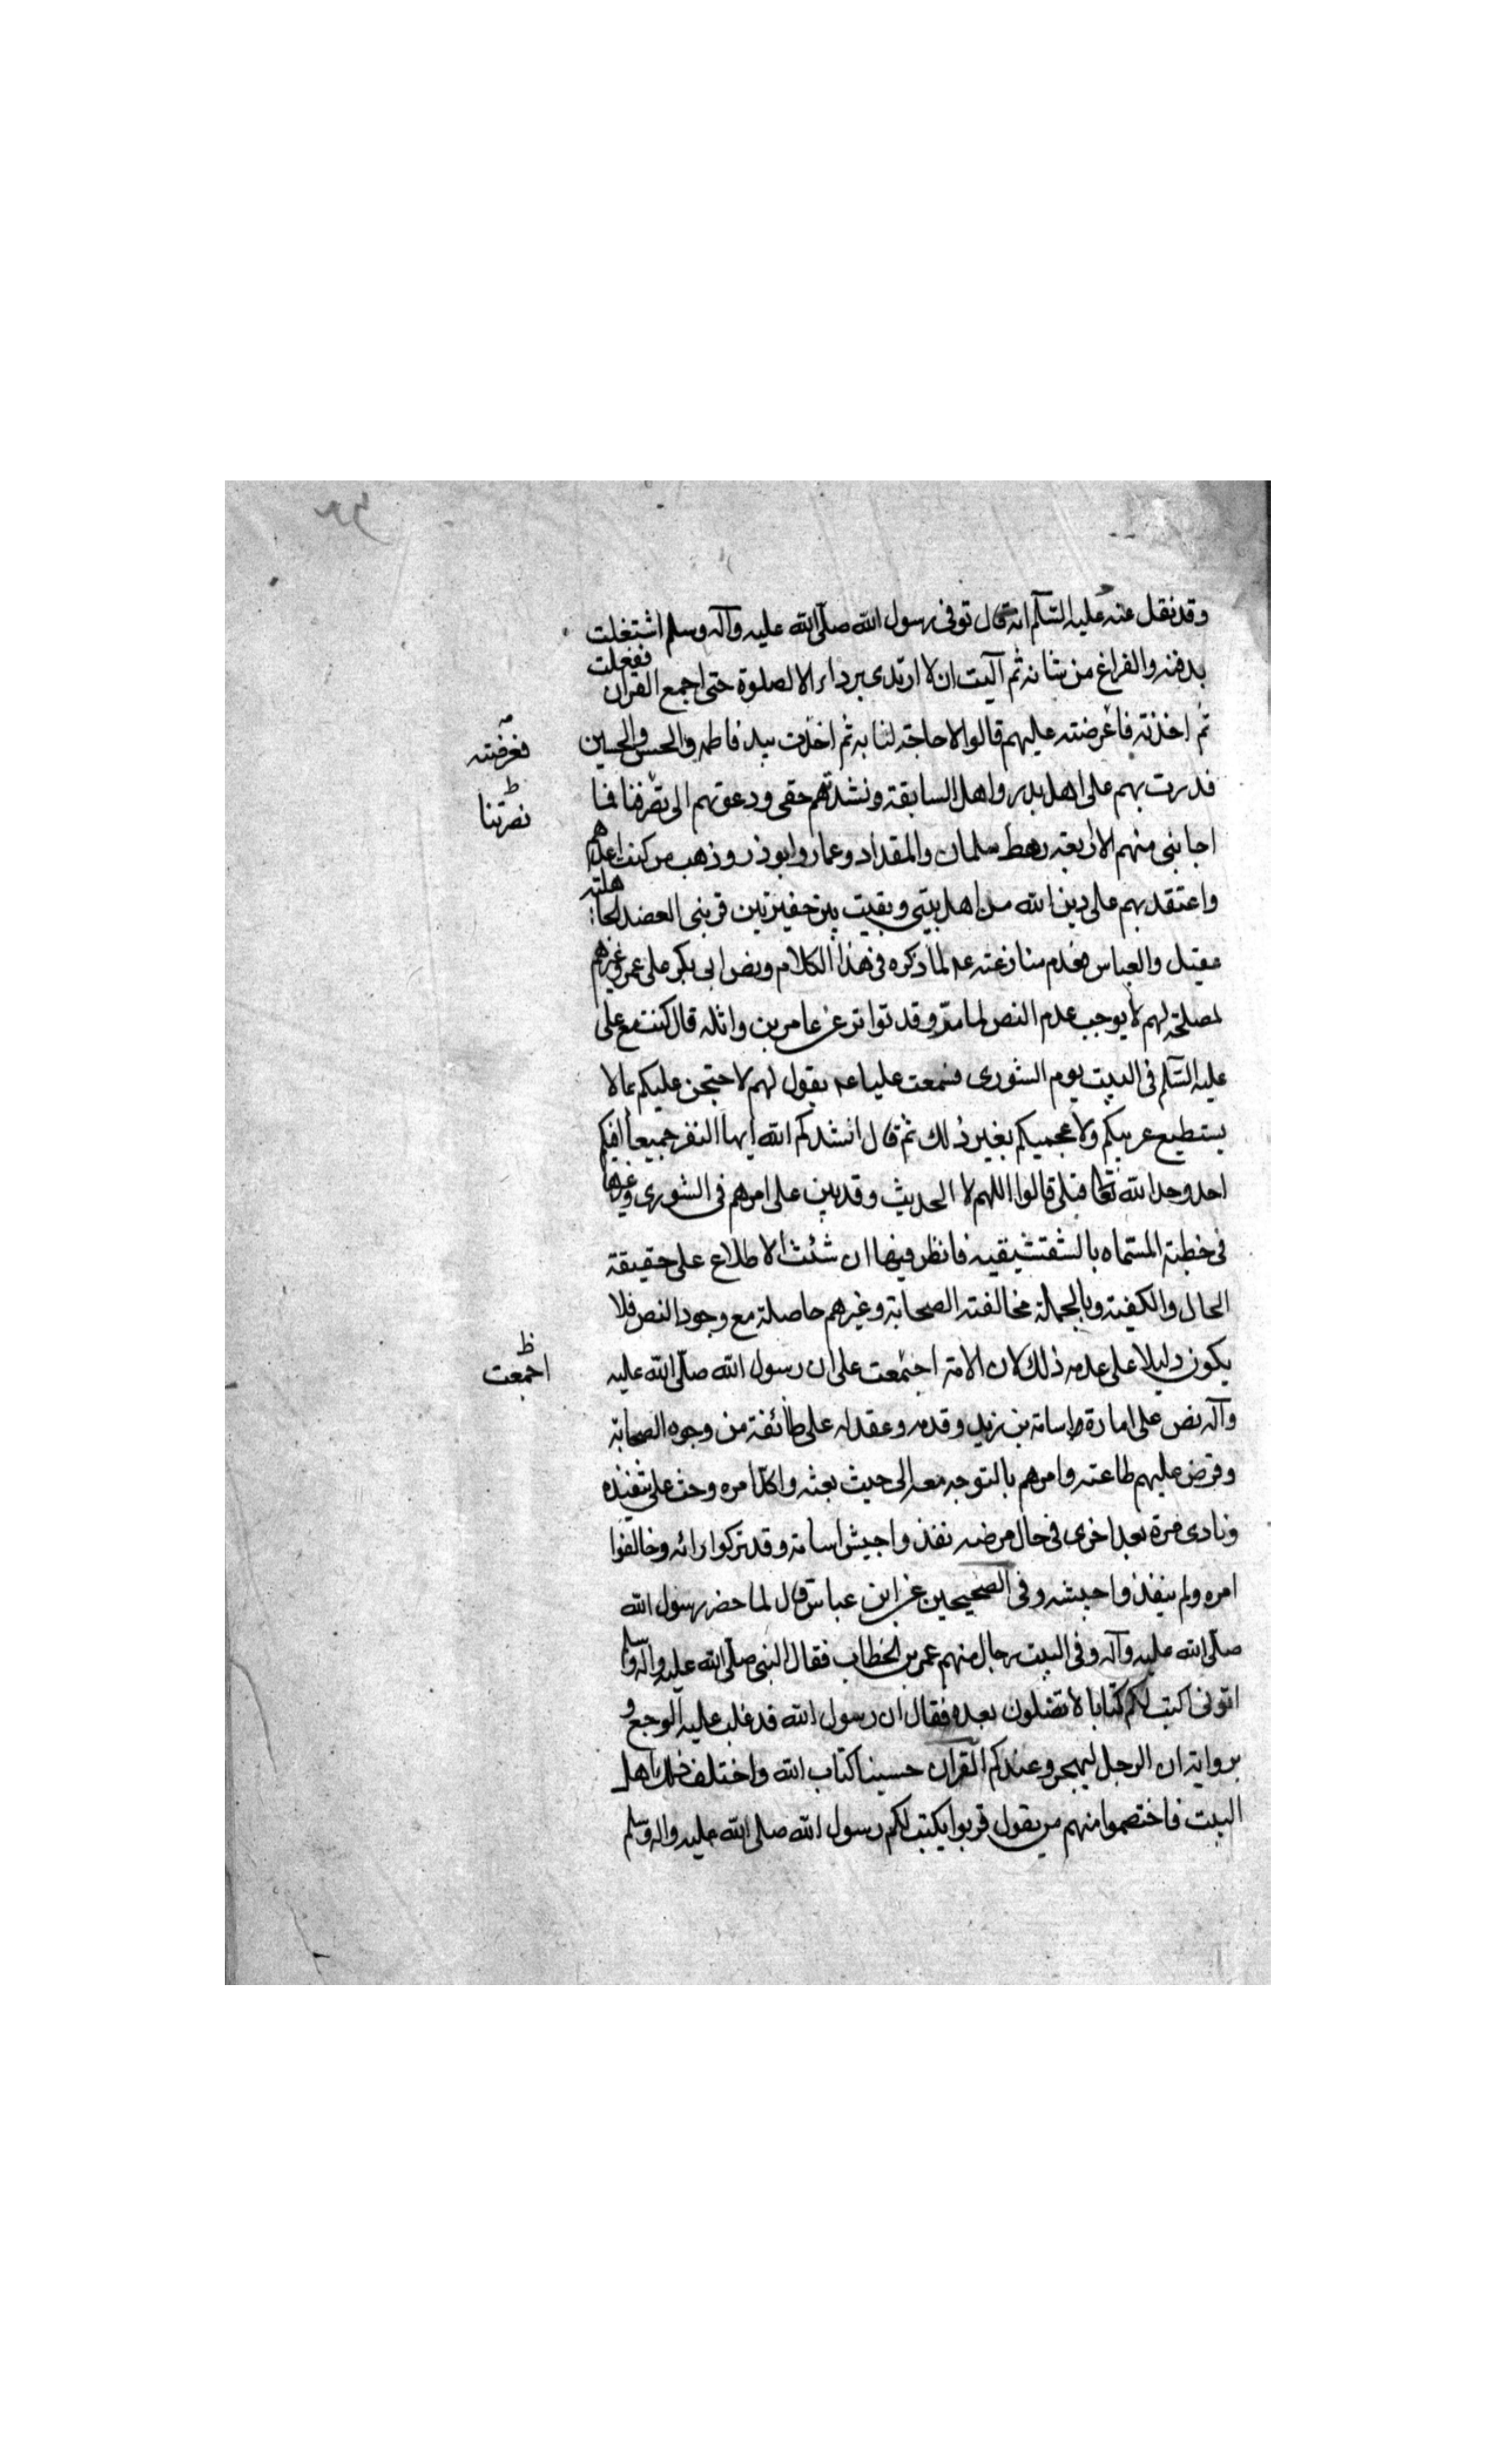 وقد نقل عنه عليه السّلم انه قال توفى رسول الله صلّى الله عليه وآله وسلم اشتغلت
بدفنه والفراغ من شانه ثم آليت ان لا ارتدى برداء الا لصلوة حتى اجمع القران ففعلت
ثم اخذته فاعرضته عليهم قالوا لا حاجة لنا به ثم اخذت بيد فاطمه والحسن والحسين
فدرت بهم على اهل بدر واهل السابقة ونشدتهم حقى ودعوتهم الى نصرتنا فما
اجابنى منهم الا اربعة رهط سلمان والمقداد وعمار وابوذر وذهب من كنت اعدهم
واعتقد بهم على دين الله من اهل بيتى وبقيت بين حفيرتين قربنى العهد بالجاهلية
عقيل والعباس فعدم منازعته عم لما ذكره فى هذا الكلام ونص ابى بكر على عمر وغيرهم
لمصلحة لهم لا يوجب عدم النص لما مر وقد تواتر عن عامر بن واثله قال كنت مع على
عليه السّلم فى البيت يوم الشورى فسمعت عليا عم يقول لهم لاحتجن عليكم بما لا
يستطيع عربيكم ولا عجميكم بغير ذلك ثم قال انشدكم الله ايها النفر جميعا افيكم
احد وحد الله تعالى قبلى قالوا اللهم لا الحديث وقد بين على امرهم فى الشورى وغيرها
فى خطبة المسماه بالشقشقيه فانظر فيها ان شئت الاطلاع على حقيقة
الحال والكيفية وبالجملة مخالفته الصحابة وغيرهم حاصلة مع وجود النص فلا
يكون دليلا على عدمه ذلك لان الامة اجتمعت على ان رسول الله صلّى الله عليه
وآله نص على امارة اسامة بن زيد وقدمه وعقد له على طائفة من وجوه الصحابة
وفرض عليهم طاعته وامرهم بالتوجه معه الى حيث بعثه واكد امره وحث على تنفيذه
ونادى مرة بعد اخرى فى حال مرضه نفذوا جيش اسامة وقد تركوا رائه وخالفوا
امره ولم ينفذوا جيشه وفى الصحيحين عن ابن عباس قال لما حضر رسول الله
صلّى الله عليه وآله وفى البيت رجال منهم عمر بن الخطاب فقال النبى صلّى الله عليه واله وسلم
ائتونى اكتب لكم كتابا لا تضلون بعده فقال ان رسول الله قد غلب عليه الوجع و
برواية ان الرجل ليهجر وعندكم القرآن حسبنا كتاب الله واختلف اهل
البيت فاختصموا منهم من يقول قربوا يكتب لكم رسول الله صلى الله عليه واله وسلم
فعرضته
نصرتنا
ظ
اجمعت